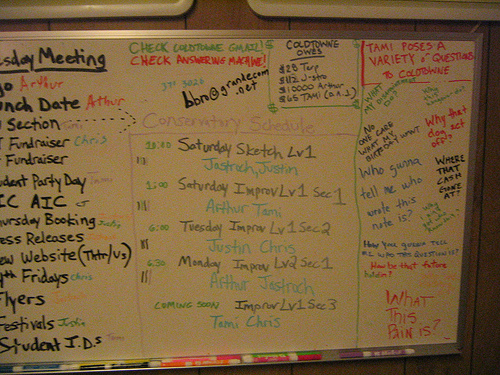 sday Meeting
Arthur
nch Date Arthur
Section Tami
Fundraiser Chris
Fundraiser
udent Party Day Tami
IC AIC
ursday Booking
ess Releases
ew Website (Thtr/Us)
th Fridays Chris
lyers
Festivals Justin
Student I.D.s Tami
CHECK COLDTOWNE GMAIL!
CHECK ANSWERING MACHINE!
bbro@grande.com
.net
Conservatory Schedule
Saturday Sketch Lv1
Jastroch, Justin
1:00 Saturday Improv Lv1 Sec1
Arthur Tami
6:00 Tuesday Improv Lv1 Sec2
Justin Chris
6:30 Monday Improv Lv2 Sec1
Arthur Jastroch
COMING SOON Improv Lv1 Sec3
Tami Chris
COLDTOWNE
OWES
$10000 Arthur
$65 TAMI
TAMI POSES A
VARIETY of QUESTIONS
to COLDTOWNE
NO
ONE CARE
WHAT MY
BIRTHDAY WANT?
Why that
dog act
off?
Who gunna
tell me who
wrote this
note is?
WHERE
THAT
CASH
GONE
AT?
How be that tattoo
WHAT
THIS
PAIN IS?